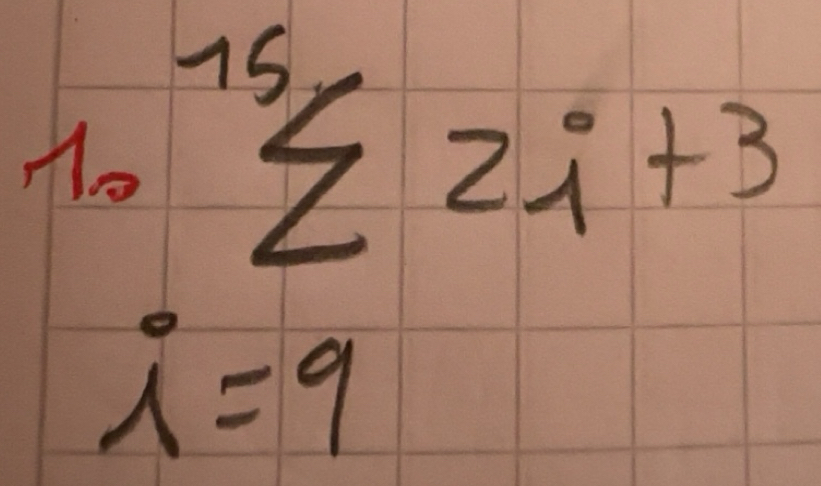 15
1. Σ 2i+3
i=9